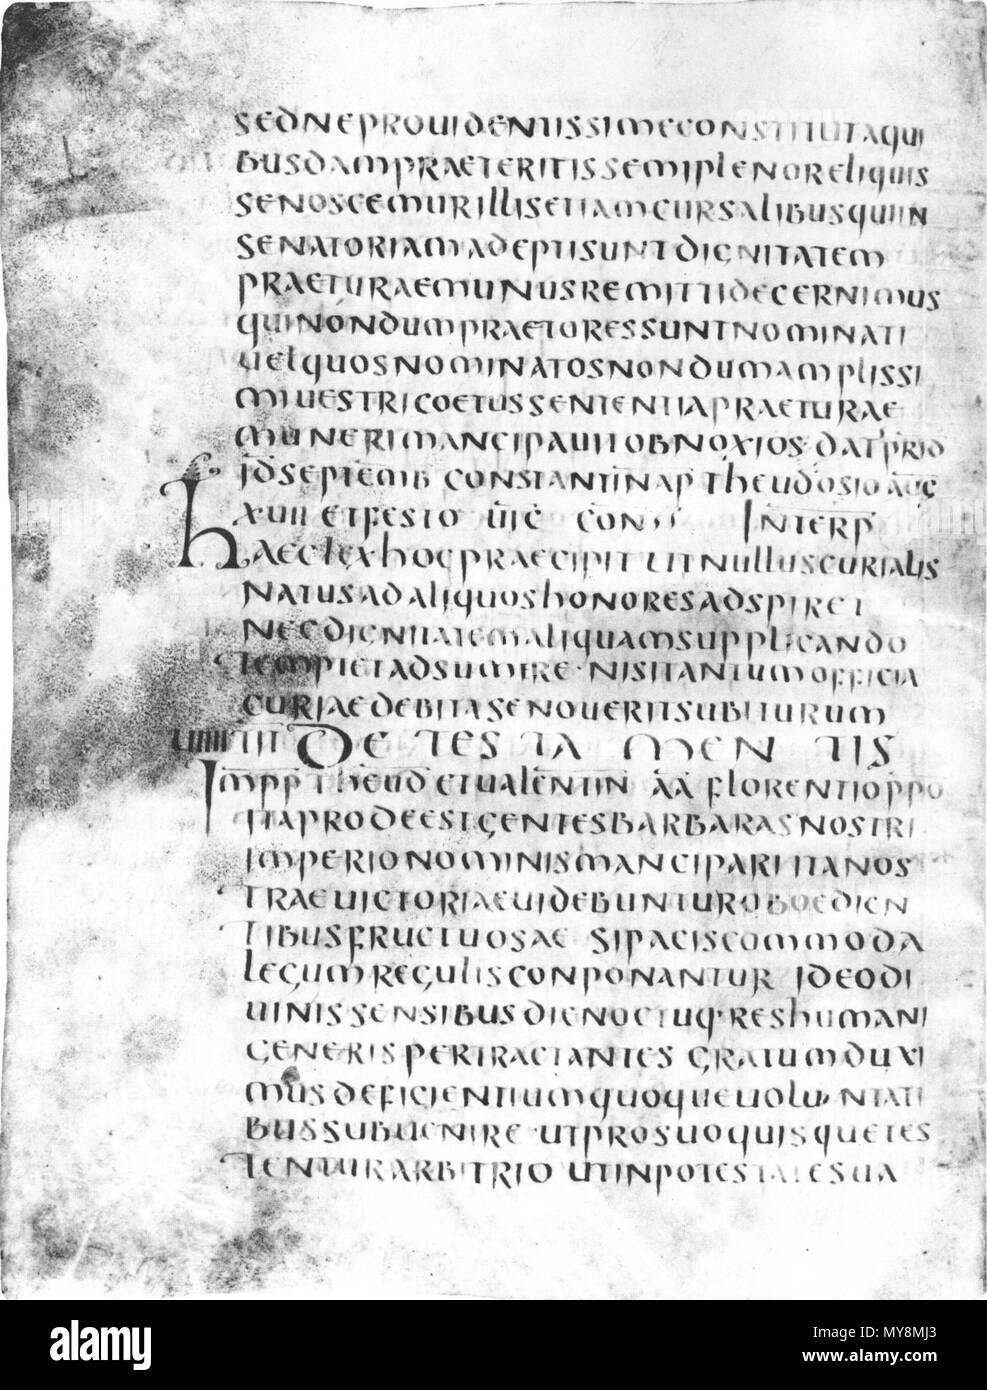 SEDNEPROUIDENTISSIMECONSTITUTAQUI
BUSDAMPRAETERITISSEMIPLENORELIQUIS
SENOSCEMURILLISETIAMCURSALIBUSQUIIN
SENATORIAMADEPTISUNTDIGNITATEM
PRAETURAEMUNUSREMITTIDECERNIMUS
QUINONDUMPRAETORESSUNTNOMINATI
UELQUOSNOMINATOSNONDUMAMPLISSI
MIUESTRICOETUSSENTENTIAPRAETURAE
MUNERIMANCIPAUITOBNOXIOS·DATPRID
IDSEPTEMB CONSTANTINAP THEUDOSIO AUG
XUII ET FESTO UIC CONSS INTERP
HAECLEXHOCPRAECIPITUTNULLUSCURIALIS
NATUSADALIQUOSHONORESADSPIRET
NECDIGNITATEMALIQUAMSUPPLICANDO
TEMPTETADSUMERE·NISITANTUMOFFICIA
CURIAEDEBITASENOUERITSUBITURUM
UIIII TIT DE TESTAMENTIS
IMPP THEUD ETUALENTIN AA FLORENTIOPPO
ITAPRODEESTGENTESBARBARASNOSTRI
IMPERIONOMINISMANCIPARIITANOS
TRAEUICTORIAEUIDEBUNTUROBOEDIEN
TIBUSFRUCTUOSAE SIPACISCOMMODA
LEGUMREGULISCONPONANTUR IDEODI
UINISSENSIBUSDIENOCTUQ·RESHUMANI
GENERISPERTRACTANTES GRATUMDUXI
MUSDEFICIENTIUMQUOQUEUOLUNTATI
BUSSUBUENIRE·UTPROSUOQUISQUETES
TENTURARBITRIO UTINPOTESTATESUA
alamy
MY8MJ3
www.alamy.com